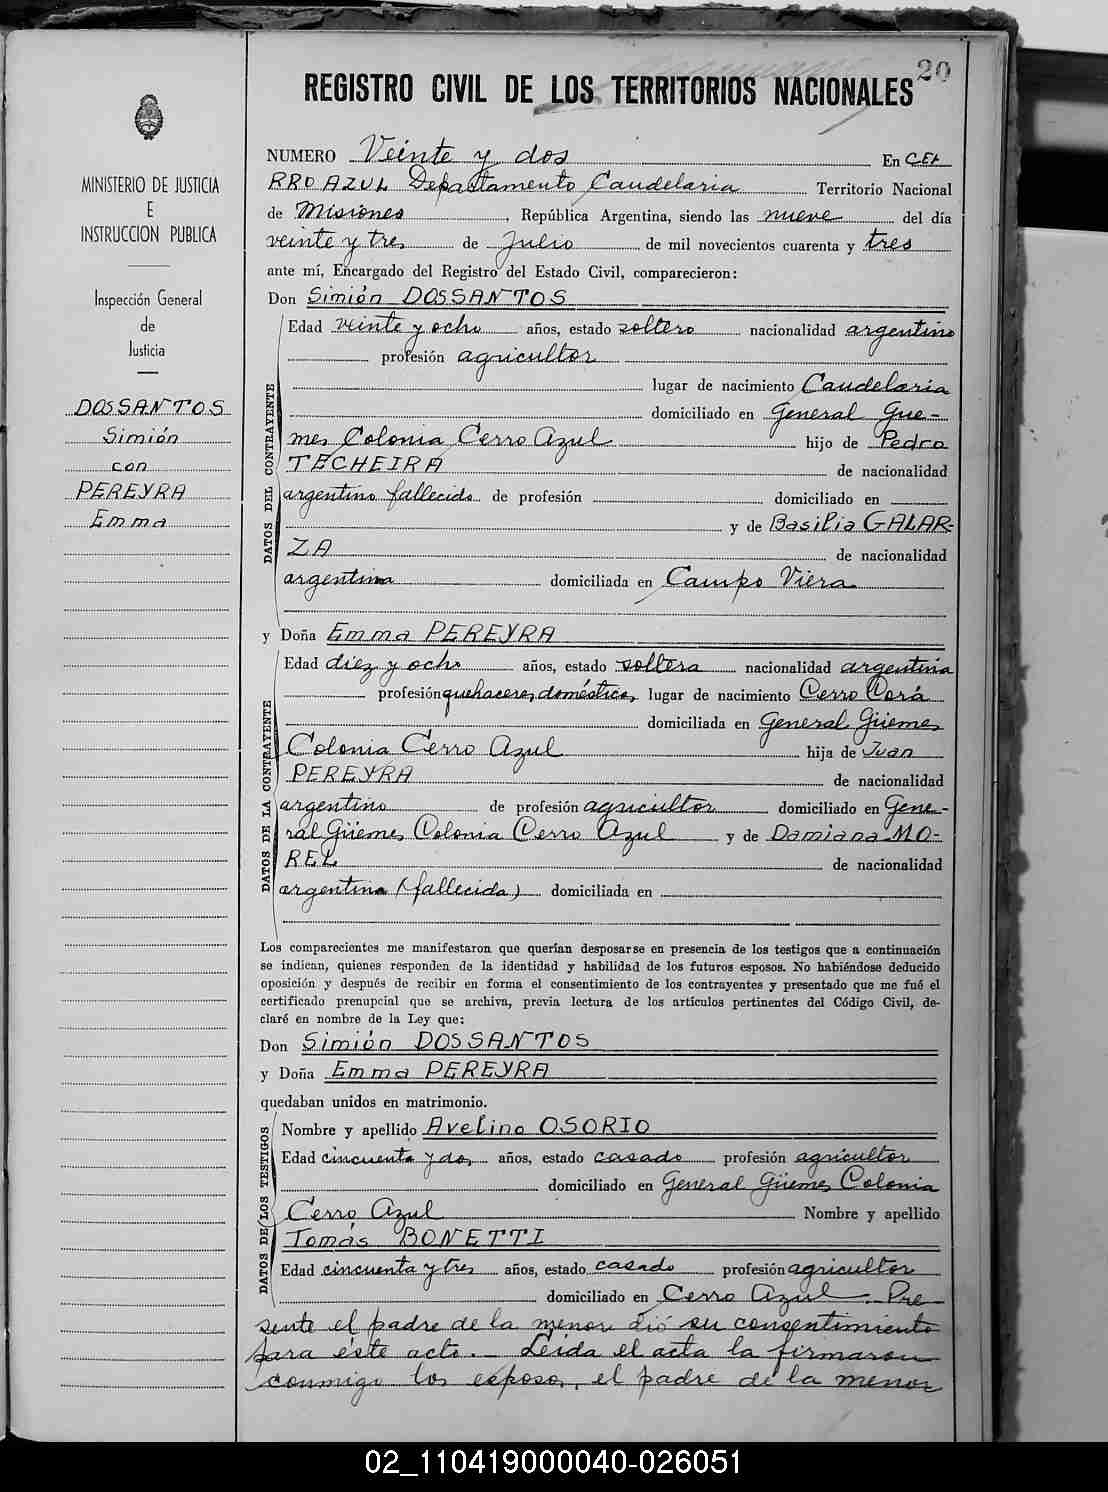 20
REGISTRO CIVIL DE LOS TERRITORIOS NACIONALES
MINISTERIO DE JUSTICIA
E
INSTRUCCION PUBLICA
Inspección General
de
Justicia
DOSSANTOS
Simión
con
PEREYRA
Emma
NUMERO Veinte y dos En CE
RRO AZUL Departamento Candelaria Territorio Nacional
de Misiones, República Argentina, siendo las nueve del día
veinte y tres de Julio de mil novecientos cuarenta y tres
ante mí, Encargado del Registro del Estado Civil, comparecieron:
Don Simión DOSSANTOS
DATOS DEL CONTRAYENTE
Edad veinte y ocho años, estado soltero nacionalidad argentino
profesión agricultor
lugar de nacimiento Candelaria
domiciliado en General Gue-
mes Colonia Cerro Azul hijo de Pedro
TECHEIRA de nacionalidad
argentino fallecido de profesión domiciliado en
y de Basilia GALAR-
ZA de nacionalidad
argentina domiciliada en Campo Viera
y Doña Emma PEREYRA
DATOS DE LA CONTRAYENTE
Edad diez y ocho años, estado soltera nacionalidad argentina
profesión quehaceres domésticos lugar de nacimiento Cerro Corá
domiciliada en General Güemes
Colonia Cerro Azul hija de Juan
PEREYRA de nacionalidad
argentino de profesión agricultor domiciliado en Gene-
ral Güemes Colonia Cerro Azul y de Damiana MO-
REL de nacionalidad
argentina (fallecida) domiciliada en
Los comparecientes me manifestaron que querían desposarse en presencia de los testigos que a continuación
se indican, quienes responden de la identidad y habilidad de los futuros esposos. No habiéndose deducido
oposición y después de recibir en forma el consentimiento de los contrayentes y presentado que me fué el
certificado prenupcial que se archiva, previa lectura de los artículos pertinentes del Código Civil, de-
claré en nombre de la Ley que:
Don Simión DOSSANTOS
y Doña Emma PEREYRA
quedaban unidos en matrimonio.
DATOS DE LOS TESTIGOS
Nombre y apellido Avelino OSORIO
Edad cincuenta y dos años, estado casado profesión agricultor
domiciliado en General Güemes Colonia
Cerro Azul Nombre y apellido
Tomás BONETTI
Edad cincuenta y tres años, estado casado profesión agricultor
domiciliado en Cerro Azul. Pre
sente el padre de la menor dió su consentimiento
para éste acto. — Leida el acta la firmaron
conmigo los esposos, el padre de la menor
02_110419000040-026051